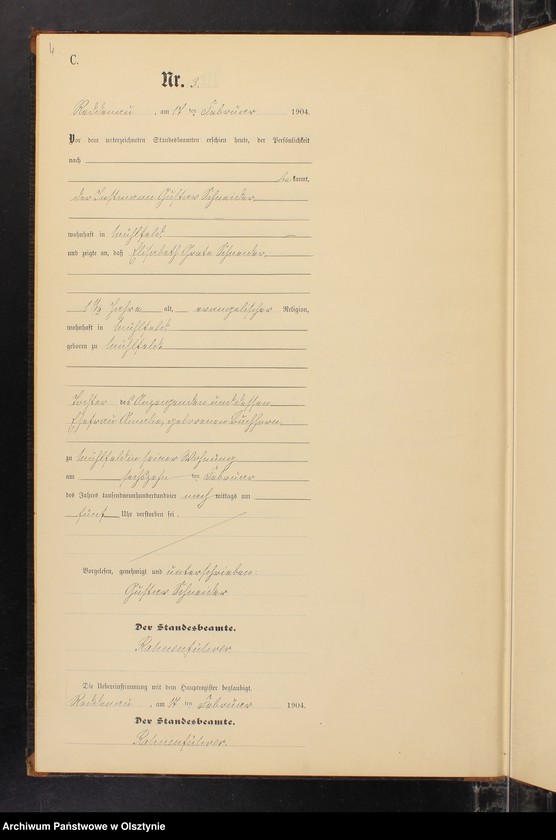 4
C.
Nr. 9.
Reddenau, am 17 ten Februar 1904.
Vor dem unterzeichneten Standesbeamten erschien heute, der Persönlichkeit
nach
bekannt,
der Instmann Gustav Schneider
wohnhaft in Mühlfeld
und zeigte an, daß Elisabeth Grete Schneider,
1 1/2 Jahre alt, evangelischer Religion,
wohnhaft in Mühlfeld
geboren zu Mühlfeld
Tochter des Anzeigenden und dessen
Ehefrau Amalie, geborenen Buchhorn
zu Mühlfeld in seiner Wohnung
am sechszehn ten Februar
des Jahres tausendneunhundertundvier nachmittags um
fünf Uhr verstorben sei.
Vorgelesen, genehmigt und unterschrieben:
Gustav Schneider
Der Standesbeamte.
Die Uebereinstimmung mit dem Hauptregister beglaubigt.
Reddenau, am 17 ten Februar 1904.
Der Standesbeamte.
Archiwum Państwowe w Olsztynie